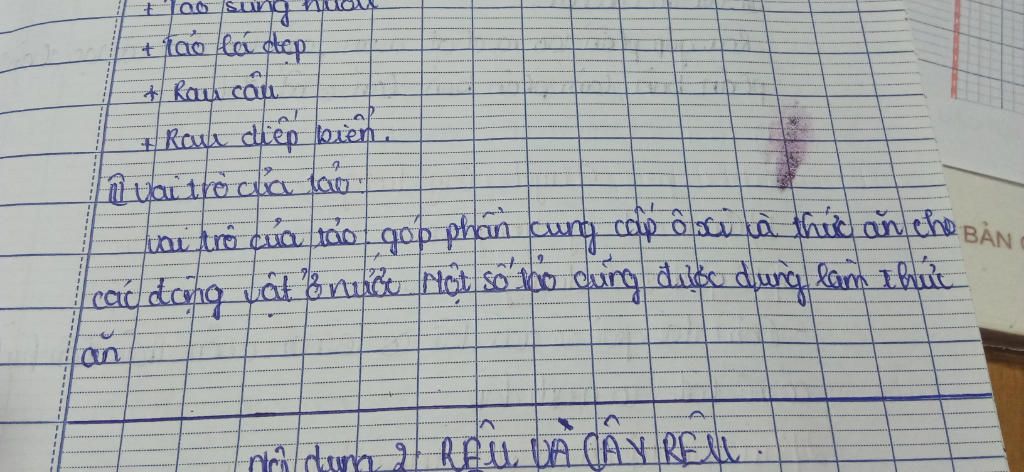 + Tảo sừng hươu
+ tảo lá dẹp
+ Rau câu
+ Rau diếp biển.
II vai trò của tảo:
vai trò của tảo góp phần cung cấp ô xi và thức ăn cho
các động vật ở nước Một số tảo cũng được dùng làm thức
ăn
BẢN
Nội dung 2: RÊU VÀ CÂY RÊU.